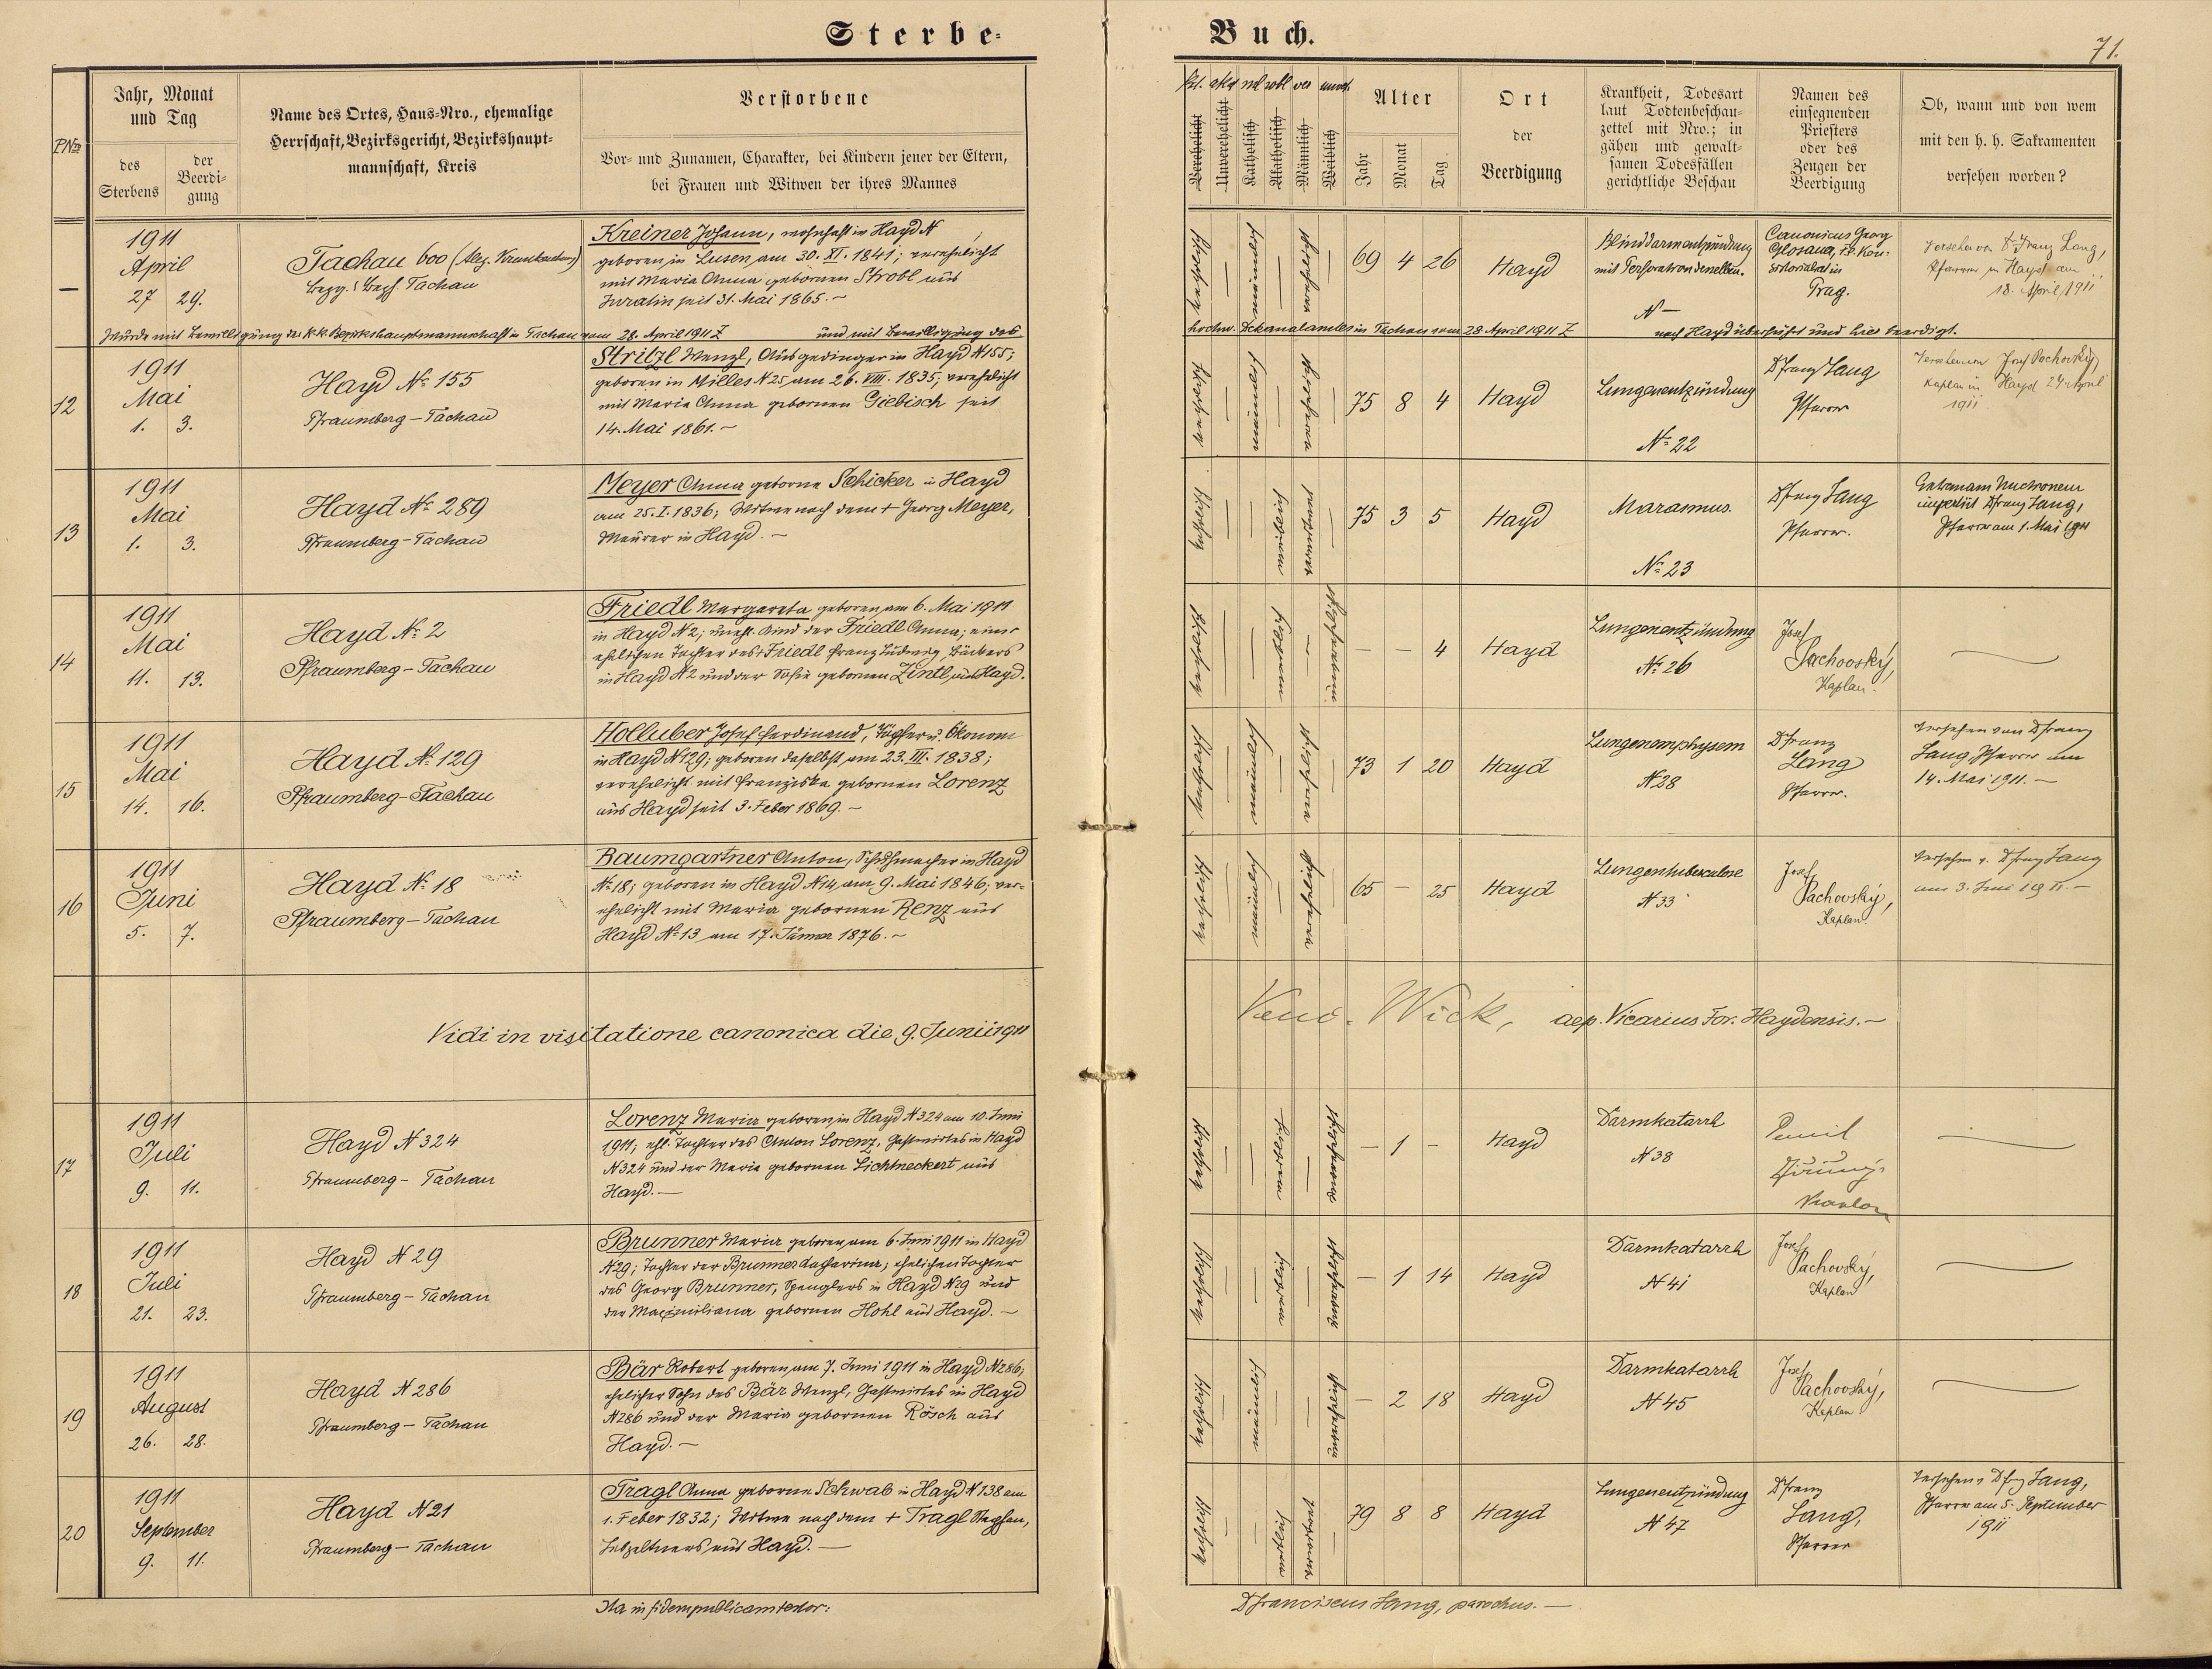 Sterbe-
Buch.
71.
PNro
Jahr, Monat
und Tag
des
Sterbens
der
Beerdi-
gung
Name des Ortes, Haus-Nro., ehemalige
Herrschaft, Bezirksgericht, Bezirkshaupt-
mannschaft, Kreis
Verstorbene
Vor- und Zunamen, Charakter, bei Kindern jener der Eltern,
bei Frauen und Witwen der ihres Mannes
Verehelicht
Unverehelicht
Katholisch
Akatholisch
Männlich
Weiblich
Alter
Jahr
Monat
Tag
Ort
der
Beerdigung
Krankheit, Todesart
laut Todtenbeschau-
zettel mit Nro.; in
gähen und gewalt-
samen Todesfällen
gerichtliche Beschau
Namen des
einsegnenden
Priesters
oder des
Zeugen der
Beerdigung
Ob, wann und von wem
mit den h. h. Sakramenten
versehen worden?
—
1911
April
27 29.
Tachau 600 (Allg. Krankenhaus)
Bezg. Bezh. Tachau
Kreiner Johann, wohnhaft in Hayd N
geboren in Lusen, am 30. XI. 1841; verehelicht
mit Maria Anna gebornen Strobl aus
Juratin seit 31. Mai 1865.
katholisch
männlich
verehelicht
69 4 26
Hayd
Blinddarmentzündung
mit Perforation desselben.
N —
Canonicus Georg
Glosauer, F.E. Kon-
sistorialrat in
Prag.
Versehen von D. Franz Lang,
Pfarrer in Hayd am
18. April 1911
Wurde mit Bewilligung der k.k. Bezirkshauptmannschaft in Tachau vom 28. April 1911 Z und mit Bewilligung des
hochw. Dekanalamtes in Tachau vom 28 April 1911 Z nach Hayd überführt und hier beerdigt.
12
1911
Mai
1. 3.
Hayd No 155
Pfraumberg – Tachau
Stritzl Wenzl, Ausgedinger in Hayd N 155;
geboren in Milles N 25 am 26. VIII. 1835; verehelicht
mit Maria Anna gebornen Giebisch seit
14. Mai 1861. –
katholisch
männlich
verehelicht
75 8 4
Hayd
Lungenentzündung
No 22
D Franz Lang
Pfarrer
Versehen von Josef Pachovský,
Kaplan in Hayd 27 April
1911
13
1911
Mai
1. 3.
Hayd No 289
Pfraumberg – Tachau
Meyer Anna geborne Schicker in Hayd
am 25. I. 1836; Witwe nach dem + Georg Meyer,
Maurer in Hayd. –
katholisch
weiblich
verwitwet
75 3 5
Hayd
Marasmus.
No 23
D Franz Lang
Pfarrer.
Extremam Unctionem
impertiit D Franz Lang,
Pfarrer am 1. Mai 1911
14
1911
Mai
11. 13.
Hayd No 2
Pfraumberg – Tachau
Friedl Margareta geboren am 6. Mai 1911
in Hayd N 2; unehl. Kind der Friedl Anna; einer
ehelichen Tochter des Friedl Franz Ludwig, Bäckers
in Hayd N 2 und der Sofie gebornen Zintl aus Hayd.
katholisch
weiblich
unverehelicht
– – 4
Hayd
Lungenentzündung
No 26
Josef
Pachovský,
Kaplan.
15
1911
Mai
14. 16.
Hayd No 129
Pfraumberg – Tachau
Holluber Josef Ferdinand, Töpfer u. Ökonom
in Hayd N 129; geboren daselbst am 23. III. 1838;
verehelicht mit Franziska gebornen Lorenz
aus Hayd seit 3. Feber 1869. –
katholisch
männlich
verehelicht
73 1 20
Hayd
Lungenemphysem
N 28
D Franz
Lang
Pfarrer.
Versehen von D Franz
Lang, Pfarrer am
14. Mai 1911. –
16
1911
Juni
5. 7.
Hayd No 18
Pfraumberg – Tachau
Baumgartner Anton, Schuhmacher in Hayd
No 18; geboren in Hayd N 14 am 9. Mai 1846; ver-
ehelicht mit Maria gebornen Renz aus
Hayd No 13 am 17. Jänner 1876. –
katholisch
männlich
verehelicht
65 – 25
Hayd
Lungentuberculose
N 33
Josef
Pachovský,
Kaplan.
Versehen v. D Franz Lang
am 3. Juni 1911. –
Vidi in visitatione canonica die 9. Junii 1911
Wick, aep. Vicarius For. Haydensis. –
17
1911
Juli
9. 11.
Hayd N 324
Pfraumberg – Tachau
Lorenz Maria geboren in Hayd N 324 am 10. Juni
1911; ehl. Tochter des Anton Lorenz, Gastwirtes in Hayd
N 324 und der Maria gebornen Lichtneckert aus
Hayd. –
katholisch
weiblich
unverehelicht
– 1 –
Hayd
Darmkatarrh
N 38
Kaplan
18
1911
Juli
21. 23.
Hayd N 29
Pfraumberg – Tachau
Brunner Maria geboren am 6. Juni 1911 in Hayd
N 29; Tochter der Brunner Katharina; ehelichen Tochter
des Georg Brunner, Spenglers in Hayd N 29 und
der Maximiliana gebornen Hohl aus Hayd. –
katholisch
weiblich
unverehelicht
– 1 14
Hayd
Darmkatarrh
N 41
Josef
Pachovský,
Kaplan
19
1911
August
26. 28.
Hayd N 286
Pfraumberg – Tachau
Bär Robert geboren am 7. Juni 1911 in Hayd N 286,
ehelicher Sohn des Bär Wenzl, Gastwirtes in Hayd
N 286 und der Maria gebornen Rösch aus
Hayd. –
katholisch
männlich
unverehelicht
– 2 18
Hayd
Darmkatarrh
N 45
Josef
Pachovský,
Kaplan
20
1911
September
9. 11.
Hayd N 21
Pfraumberg – Tachau
Tragl Anna geborne Schwab in Hayd N 138 am
1. Feber 1832; Witwe nach dem + Tragl Stephan,
Lebzeltners aus Hayd. –
katholisch
weiblich
verwitwet
79 8 8
Hayd
Lungenentzündung
N 47
D Franz
Lang,
Pfarrer
Versehen v. D Franz Lang,
Pfarrer am 5. September
1911
Ita in fidem publicam testor:
D Franciscus Lang, parochus. –